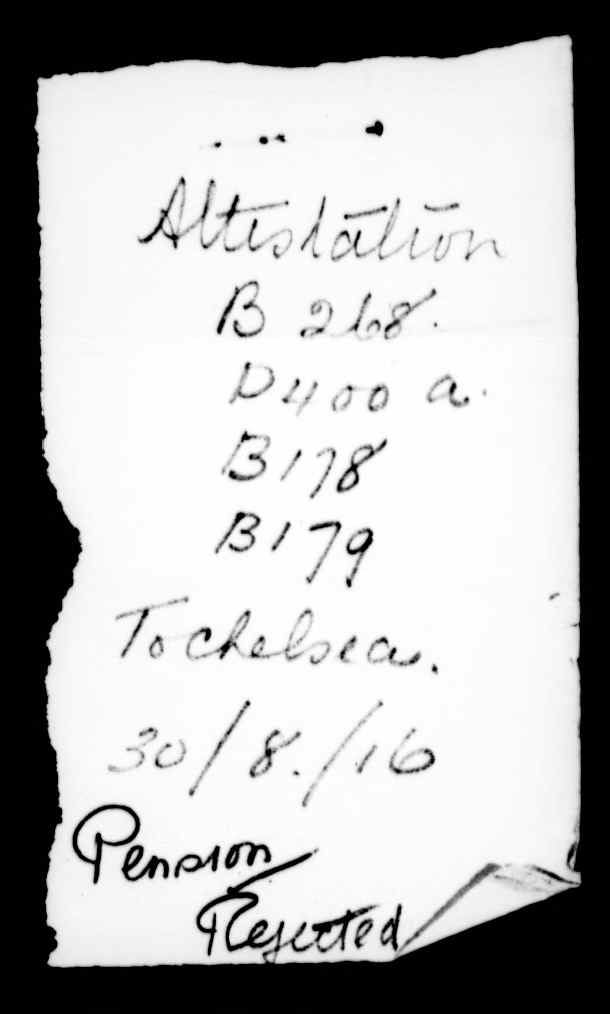 Attestation
B 268.
D400 a.
B178
B179
To chelsea.
30/8./16
Pension
Rejected